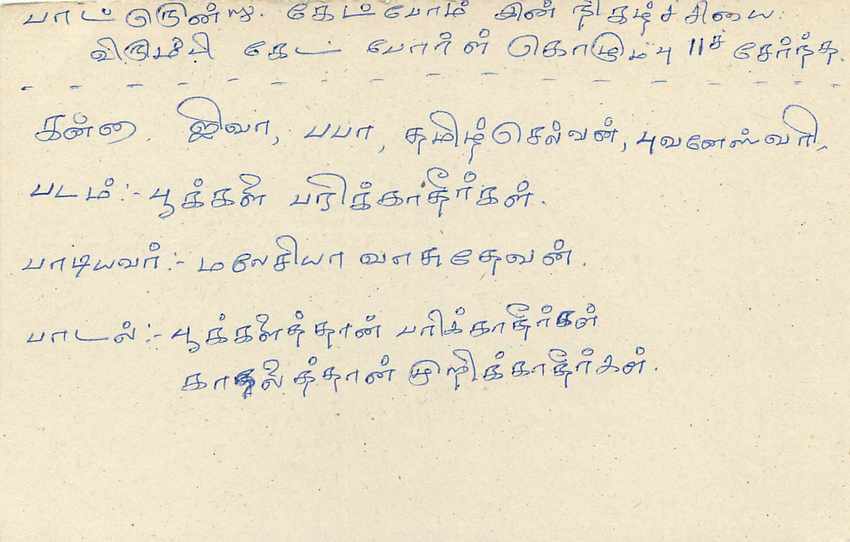 பாட்டொன்று கேட்போம் இன் நிகழ்ச்சியை:
விரும்பி கேட் போர்ள் கொழும்பு 11ச் சேர்ந்த.
கன்னா. ஜிவா, பபா, தமிழ்செல்வன், புவனேஸ்வரி,
படம்:- பூக்களை பறிக்காதீர்கள்.
பாடியவர்:- மலேசியா வாசுதேவன்.
பாடல்:- பூக்களைத்தான் பரிக்காதீர்கள்
காதலைத்தான் முறிக்காதீர்கள்.